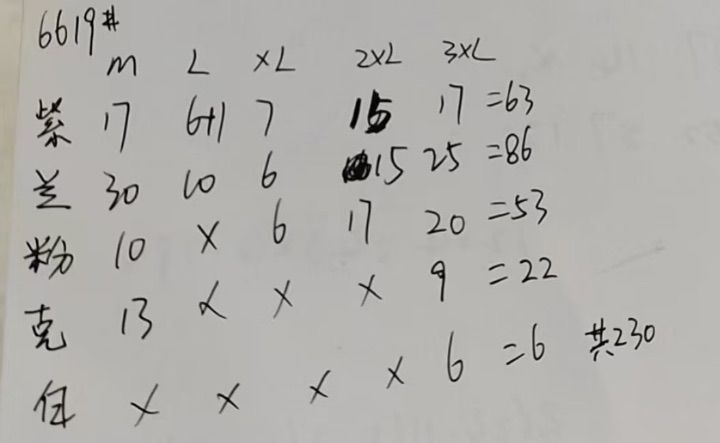 6619#
M L XL 2XL 3XL
紫 17 6+1 7 15 17 =63
兰 30 10 6 15 25 =86
粉 10 X 6 17 20 =53
克 13 X X X 9 =22
X X X X 6 =6 共230